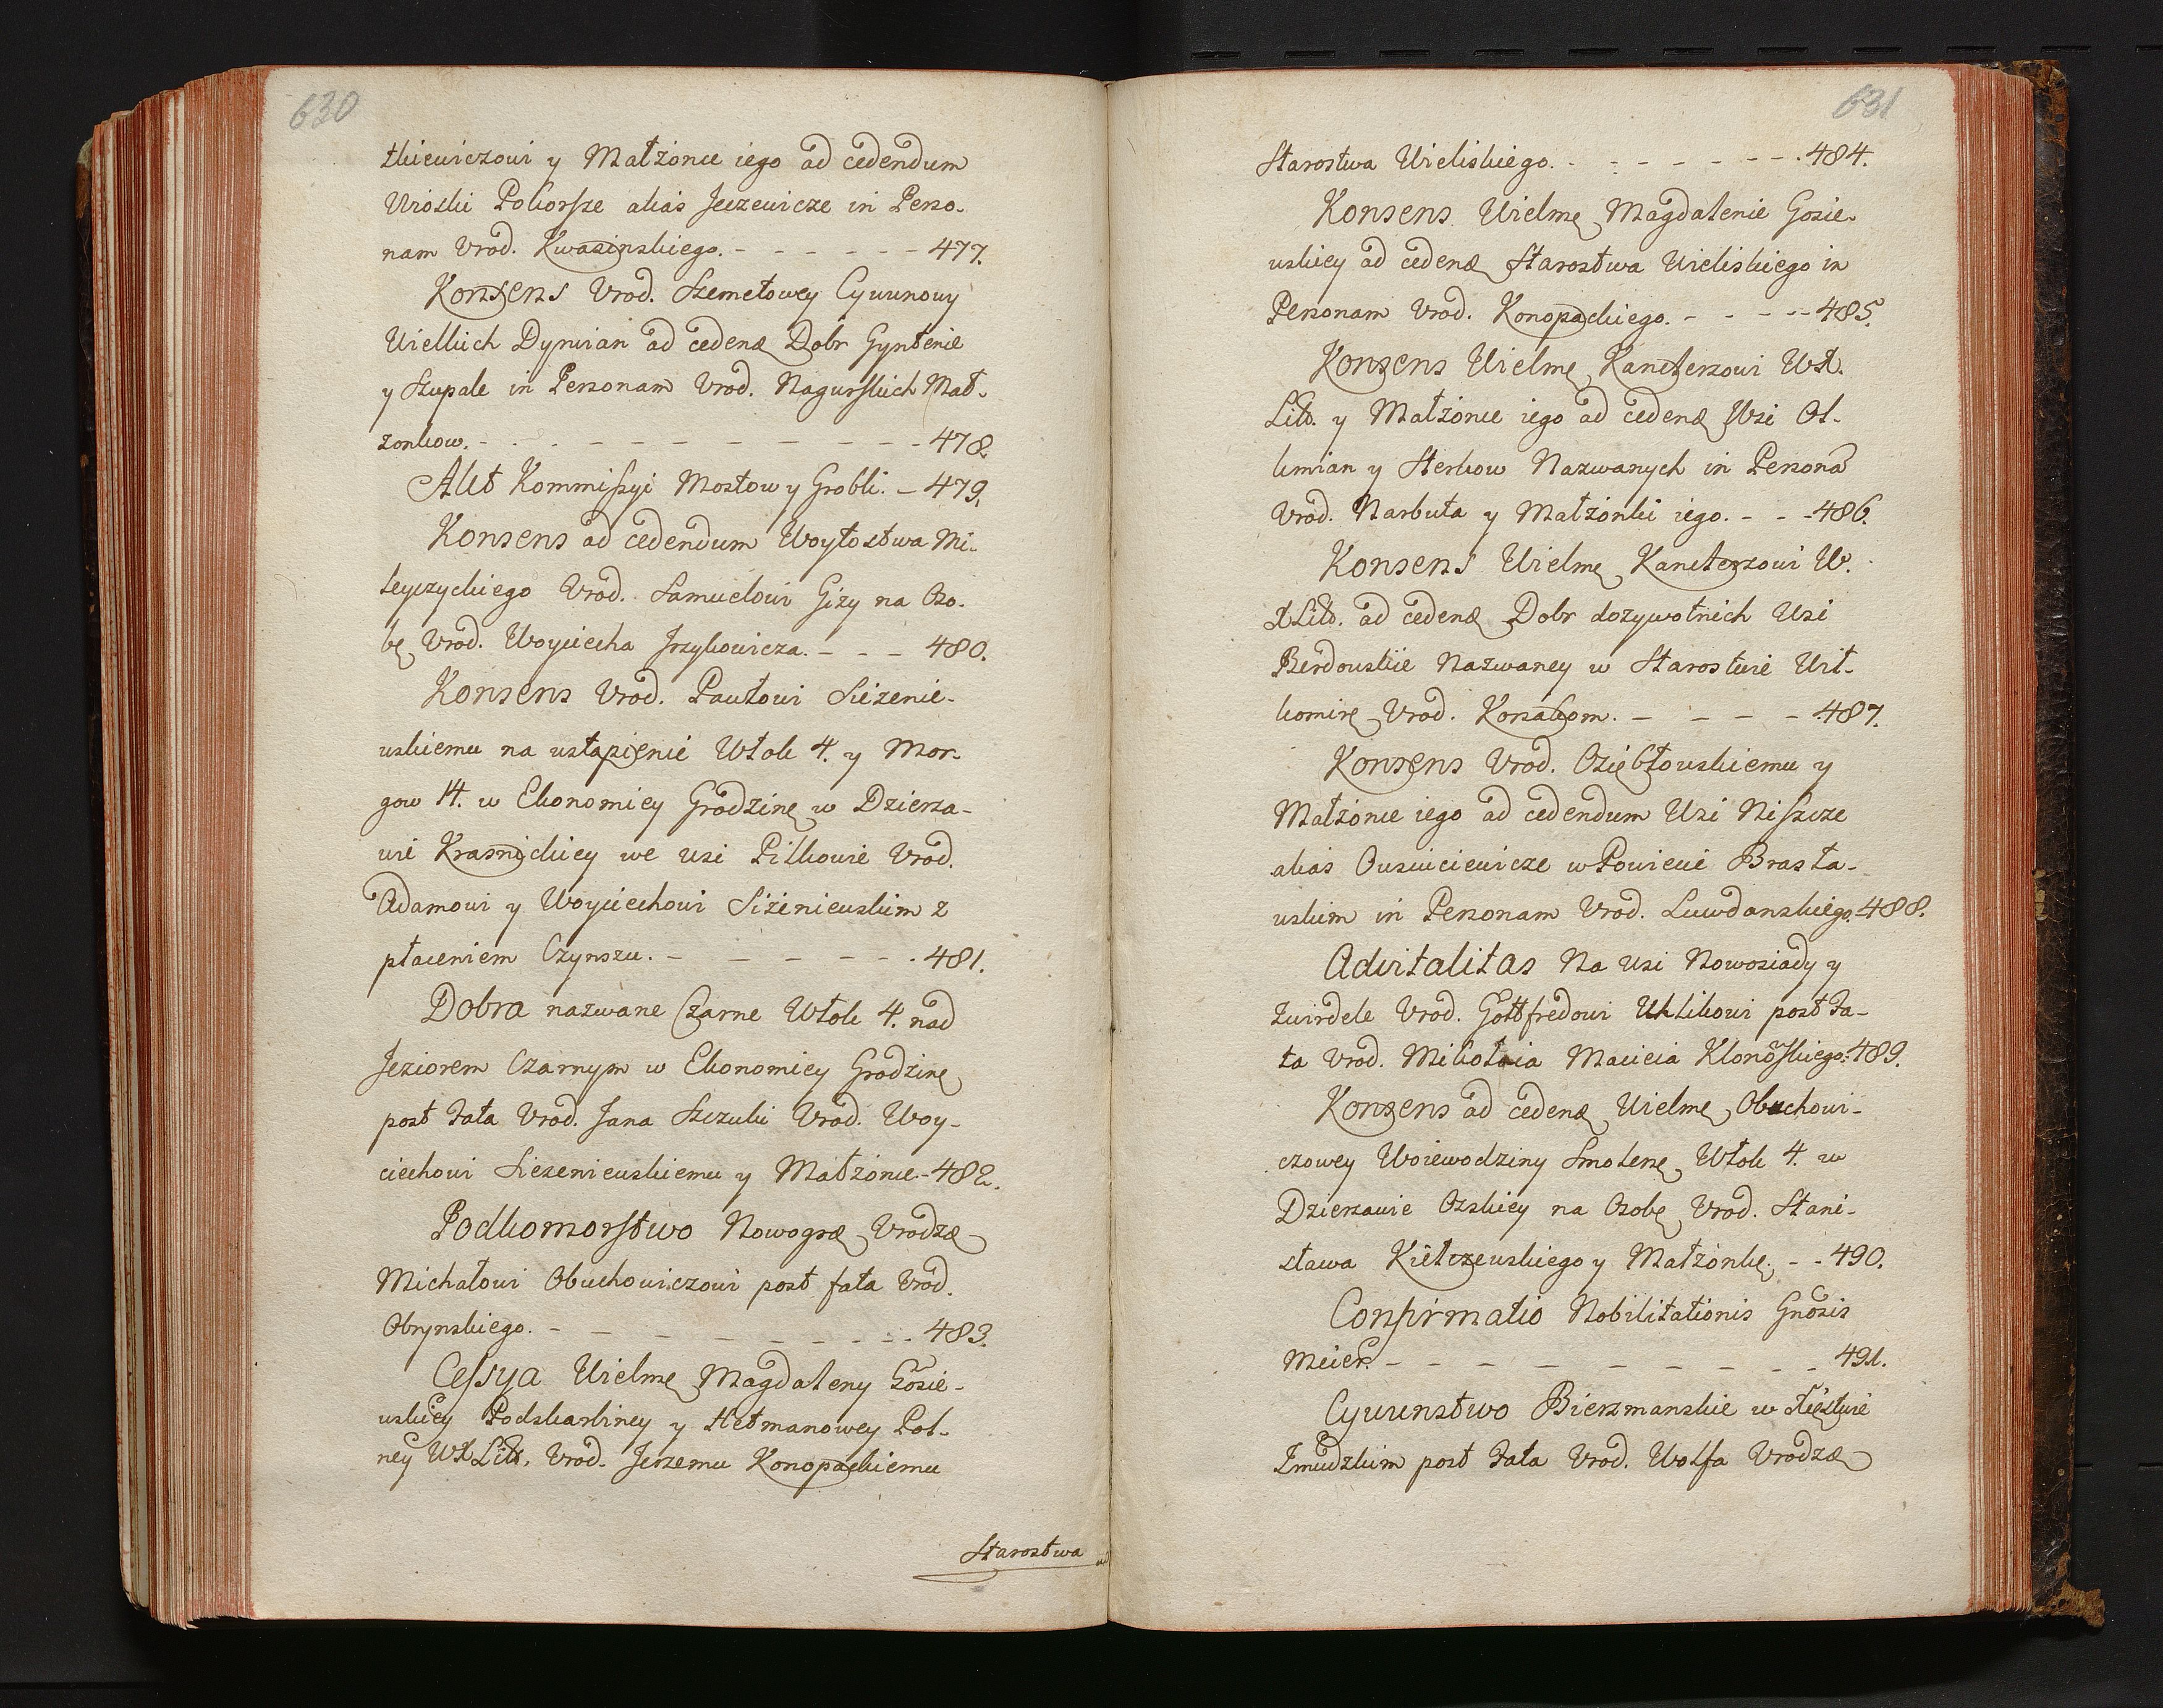 630
tkiewiczowi y Małżonce iego ad cedendum
Wioski Pokorsze alias Jeczewicze in Perso-
nam Urod. Kwasinskiego. - - - - - - - 477.
Konsens Urod. Szemetowey Cywunowy
Wielkich Dyrwian ad cedenđ Dobr Gyntenie
y Szupale in Personam Urod. Nagurskich Mał-
zonkow. - - - - - - - - - - - 478.
Akt Kommissyi Mostow y Grobli. - 479.
Konsens ad cedendum Woytostwa Mi-
leyczyckiego Urod. Samuelowi Gizy na Oso-
bę Urod. Woyciecha Jrzykowicza. - - - 480.
Konsens Urod. Pawłowi Siezenie-
wskiemu na ustąpienie Włok 4. y Mor-
gow 14. w Ekonomiey Grodzinę w Dzierza-
wie Krasnickiey we wsi Pilkowie Urod.
Adamowi y Woyciechowi Siżeniewskim z
płaceniem Czynszu. - - - - - - 481.
Dobra nazwane Czarne Włok 4. nad
Jeziorem Czarnym w Ekonomiey Grodzinę
post Fata Urod. Jana Szczuki Urod. Woy-
ciechowi Siezeniewskiemu y Małżonce - 482.
Podkomorstwo Nowogrđ Urodzđ
Michałowi Obuchowiczowi post fata Urod.
Obrynskiego. - - - - - - - - - 483.
Cessya Wielmę Magdaleny Gosie-
wskiey Podskarbiney y Hetmanowey Pol-
ney WXLitt. Urod. Jerzemu Konopackiemu
Starostwa
631
Starostwa Wieliskiego. - - - - - - - - 484.
Konsens Wielmę Magdalenie Gosie-
wskiey ad cedenđ Starostwa Wieliskiego in
Personam Urod. Konopackiego. - - - - - 485.
Konsens Wielmę Kanclerzowi WX.
Litt. y Małżonce iego ad cedenđ Wsi Ol-
kmian y Sterkow Nazwanych in Personã
Urod. Narbuta y Małżonki iego. - - - 486.
Konsens Wielmę Kanclerzowi W.
XLitt. ad cedenđ Dobr dozywotnich Wsi
Berdowskie Nazwaney w Starostwie Wil-
komirę Urod. Korsakom. - - - - - 487.
Konsens Urod. Oziębłowskiemu y
Małżonce iego ad cedendum Wsi Niszcze
alias Ouswiciewicze w Powiecie Brasła-
wskim in Personam Urod. Luwdanskiego. 488.
Advitalitas Na wsi Nowosiady y
Zwirdele Urod. Gottfredowi Uhlikowi post Fa-
ta Urod. Mikołaia Macieia Klonõskiego: 489.
Konsens ad cedenđ Wielmę Obuchowi-
czowey Woiewodziny Smolenę Włok 4. w
Dzierzawie Ozskiey na Osobę Urod. Stani-
sława Kiełczewskiego y Małżonkę. - - 490.
Confirmatio Nobilitationis Gnõsis
Meier. - - - - - - - - - 491.
Cywunstwo Bierzmanskie w Xięstwie
Zmudzkim post Fata Urod. Wolfa Urodzđ